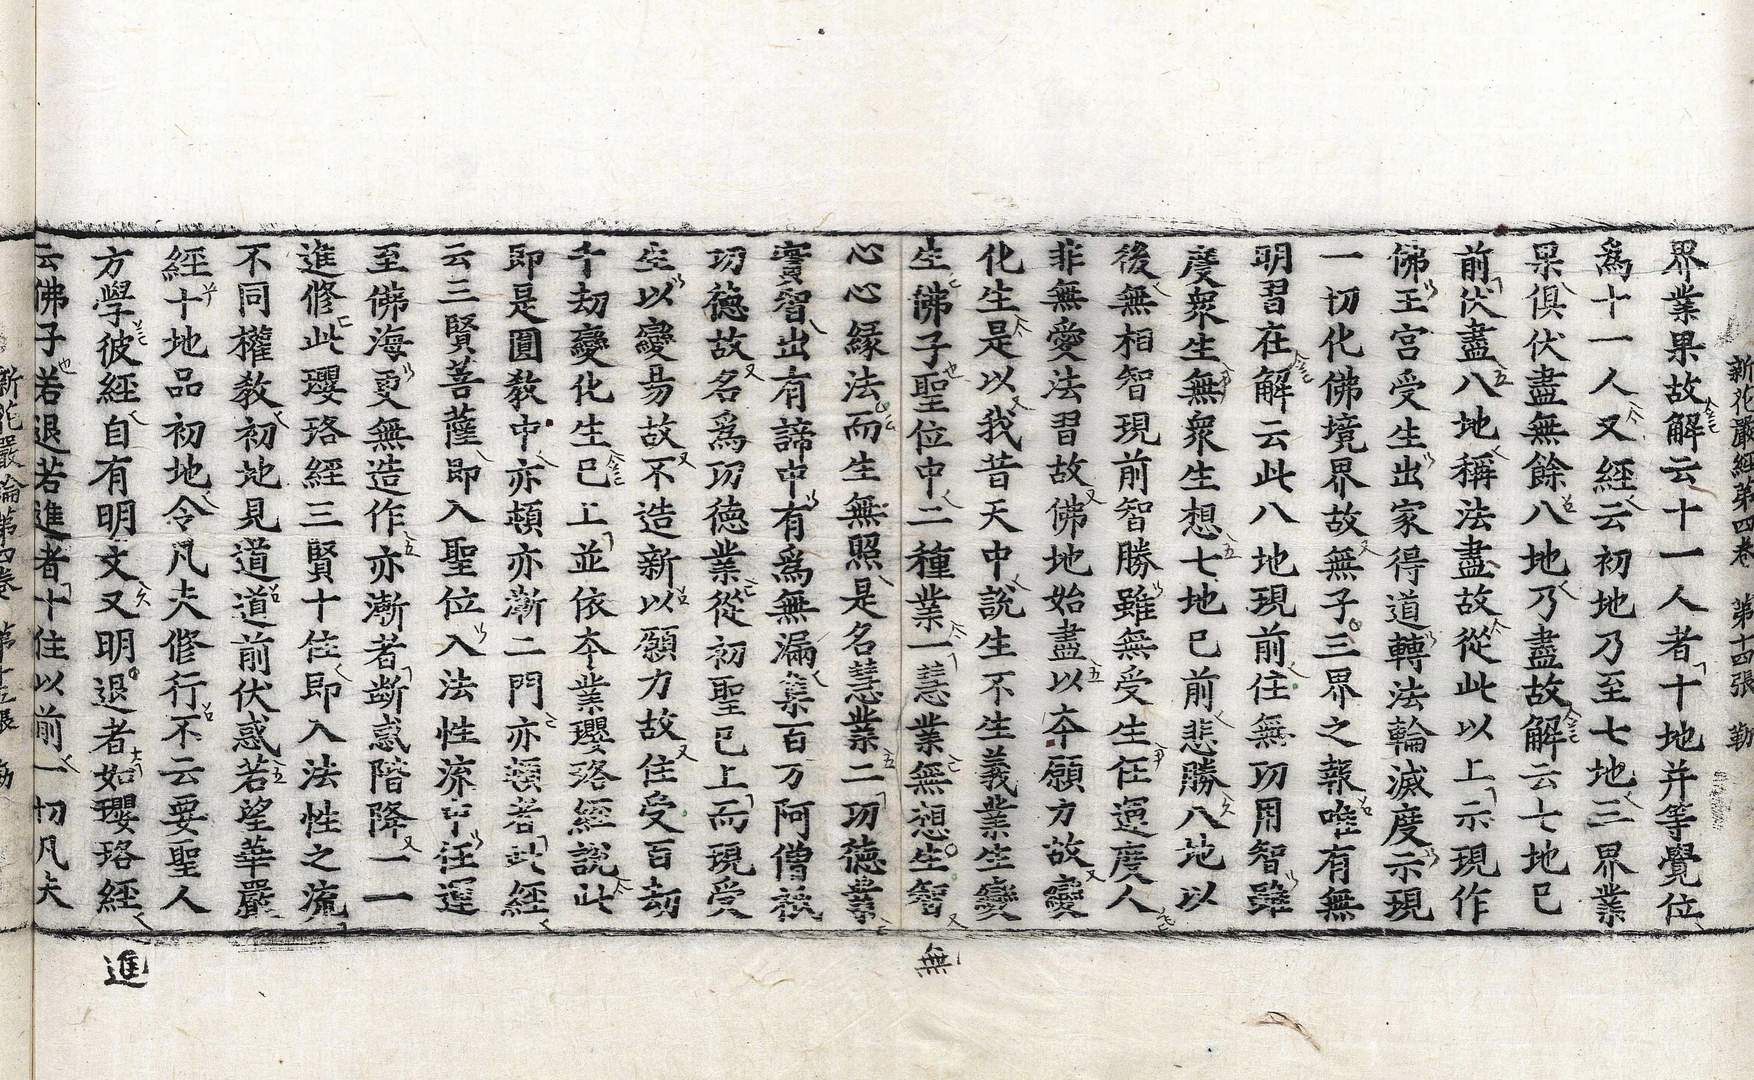 新花嚴經第四卷　第十四張　勒
界業果故解云十一人者十地并等覺位
爲十一人又經云初地乃至七地三界業
果俱伏盡無餘八地乃盡故解云七地已
前伏盡八地稱法盡故從此以上示現作
佛王宮受生出家得道轉法輪滅度示現
一切化佛境界故無子三界之報唯有無
明習在解云此八地現前住無功用智雖
度衆生無衆生想七地已前悲勝八地以
後無相智現前智勝雖無受生任運度人
非無愛法習故佛地始盡以本願力故變
化生是以我昔天中說生不生義業生變
生佛子聖位中二種業一慧業無想生智
無
心心緣法而生無照是名慧業二功德業
實智出有諦中有爲無漏集百万阿僧祇
功德故名爲功德業從初聖已上而現受
生以變易故不造新以願力故住受百劫
千劫變化生已上並依本業瓔珞經說此
即是圓敎中亦頓亦漸二門亦頓者此經
云三賢菩薩即入聖位入法性流中任運
至佛海更無造作亦漸者斷惑階降一一
進修此瓔珞經三賢十住即入法性之流
不同權敎初地見道道前伏惑若望華嚴
經十地品初地令凡夫修行不云要聖人
方學彼經自有明文又明退者如瓔珞經
進
云佛子若退若進者十住以前一切凡夫
新花嚴論第四卷　第十五張　勒